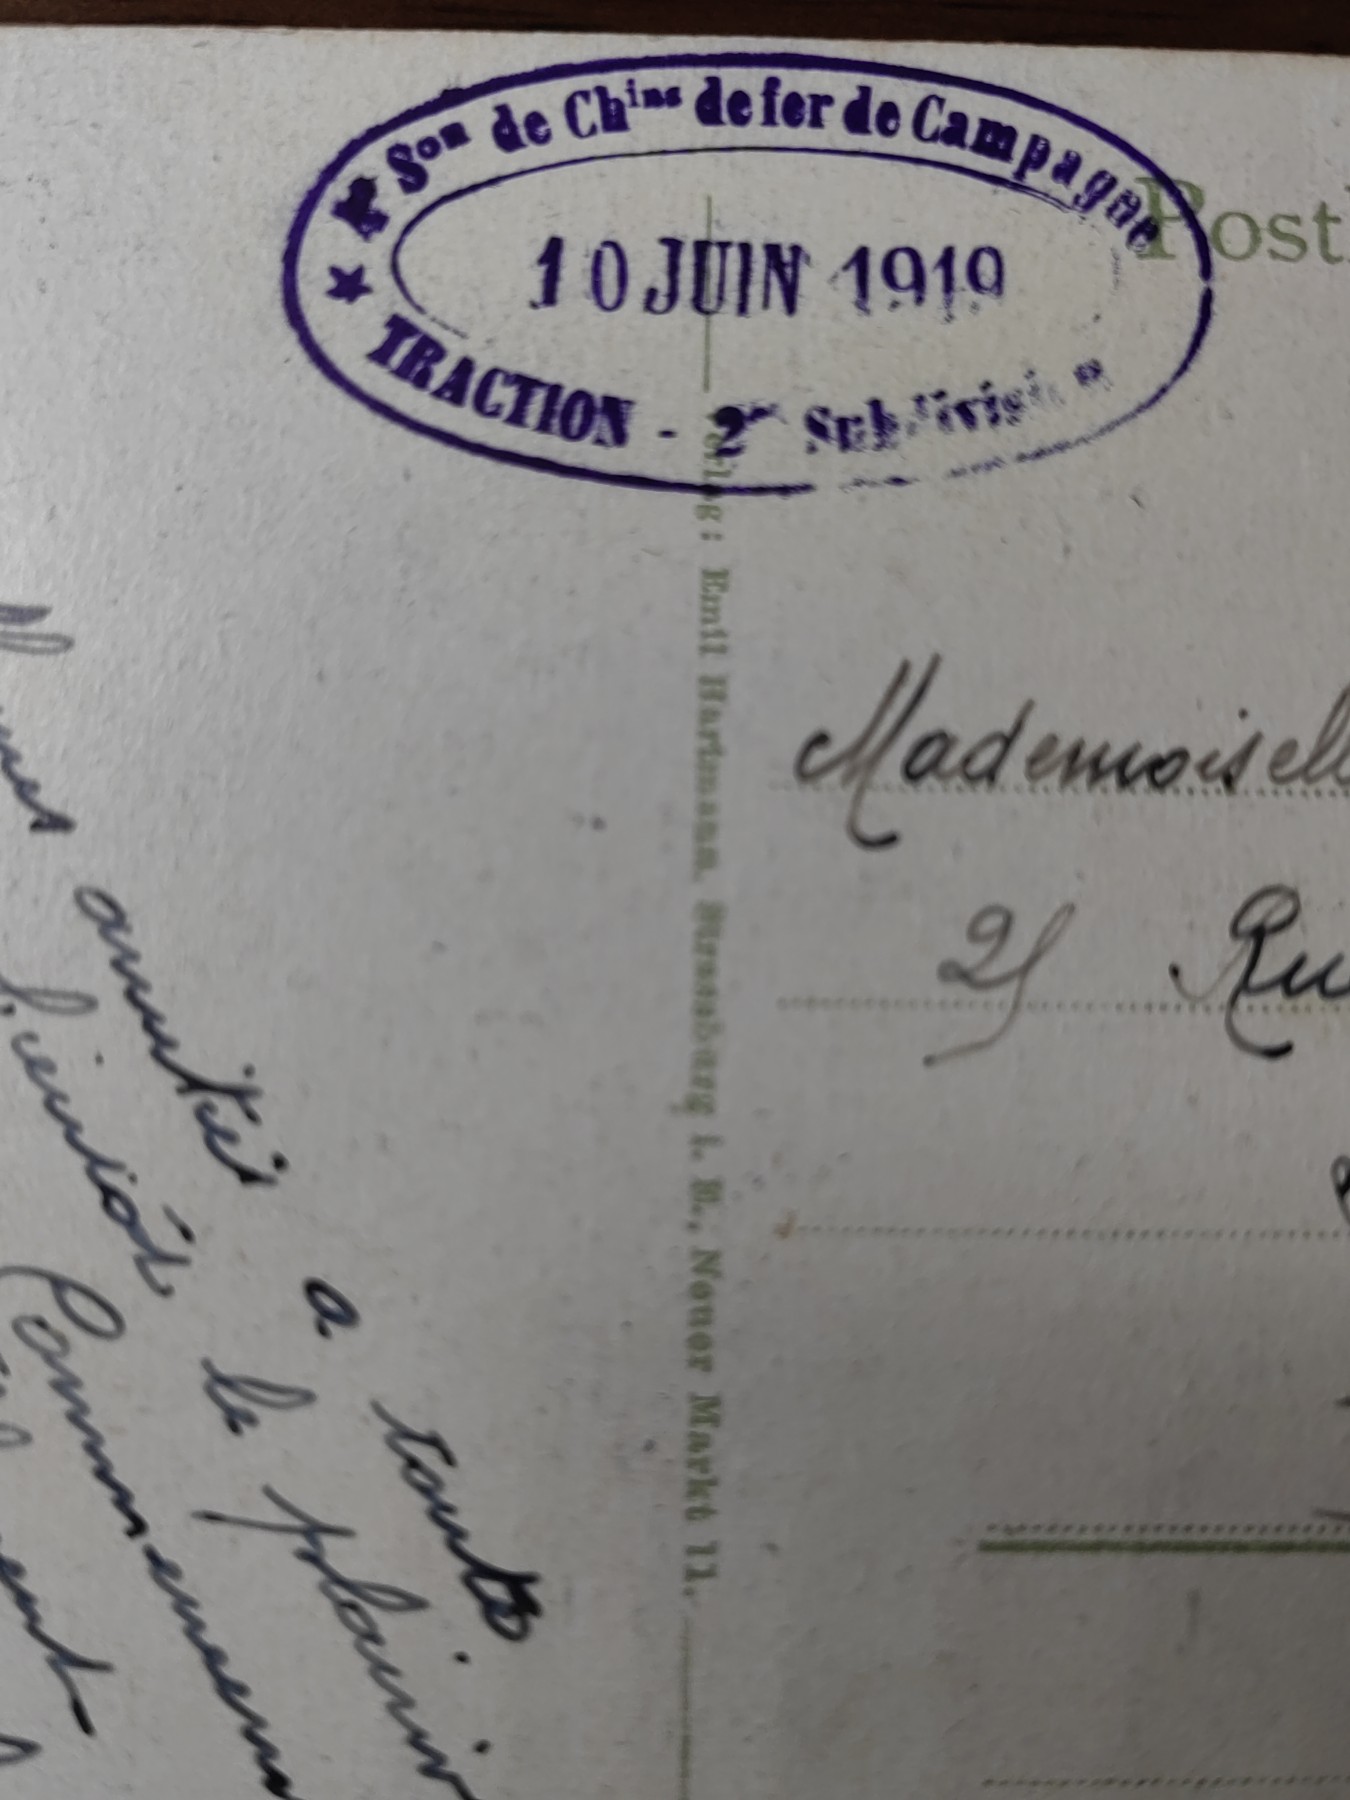 Son de Chins de fer de Campagne
10 JUIN 1919
TRACTION - 2e Subdivision
Post
Verlag: Emil Hartmann, Strassburg i. E., Neuer Markt 11.
Mademoisell
Ru
amitiés à toute
bientôt le plaisir
Commencem